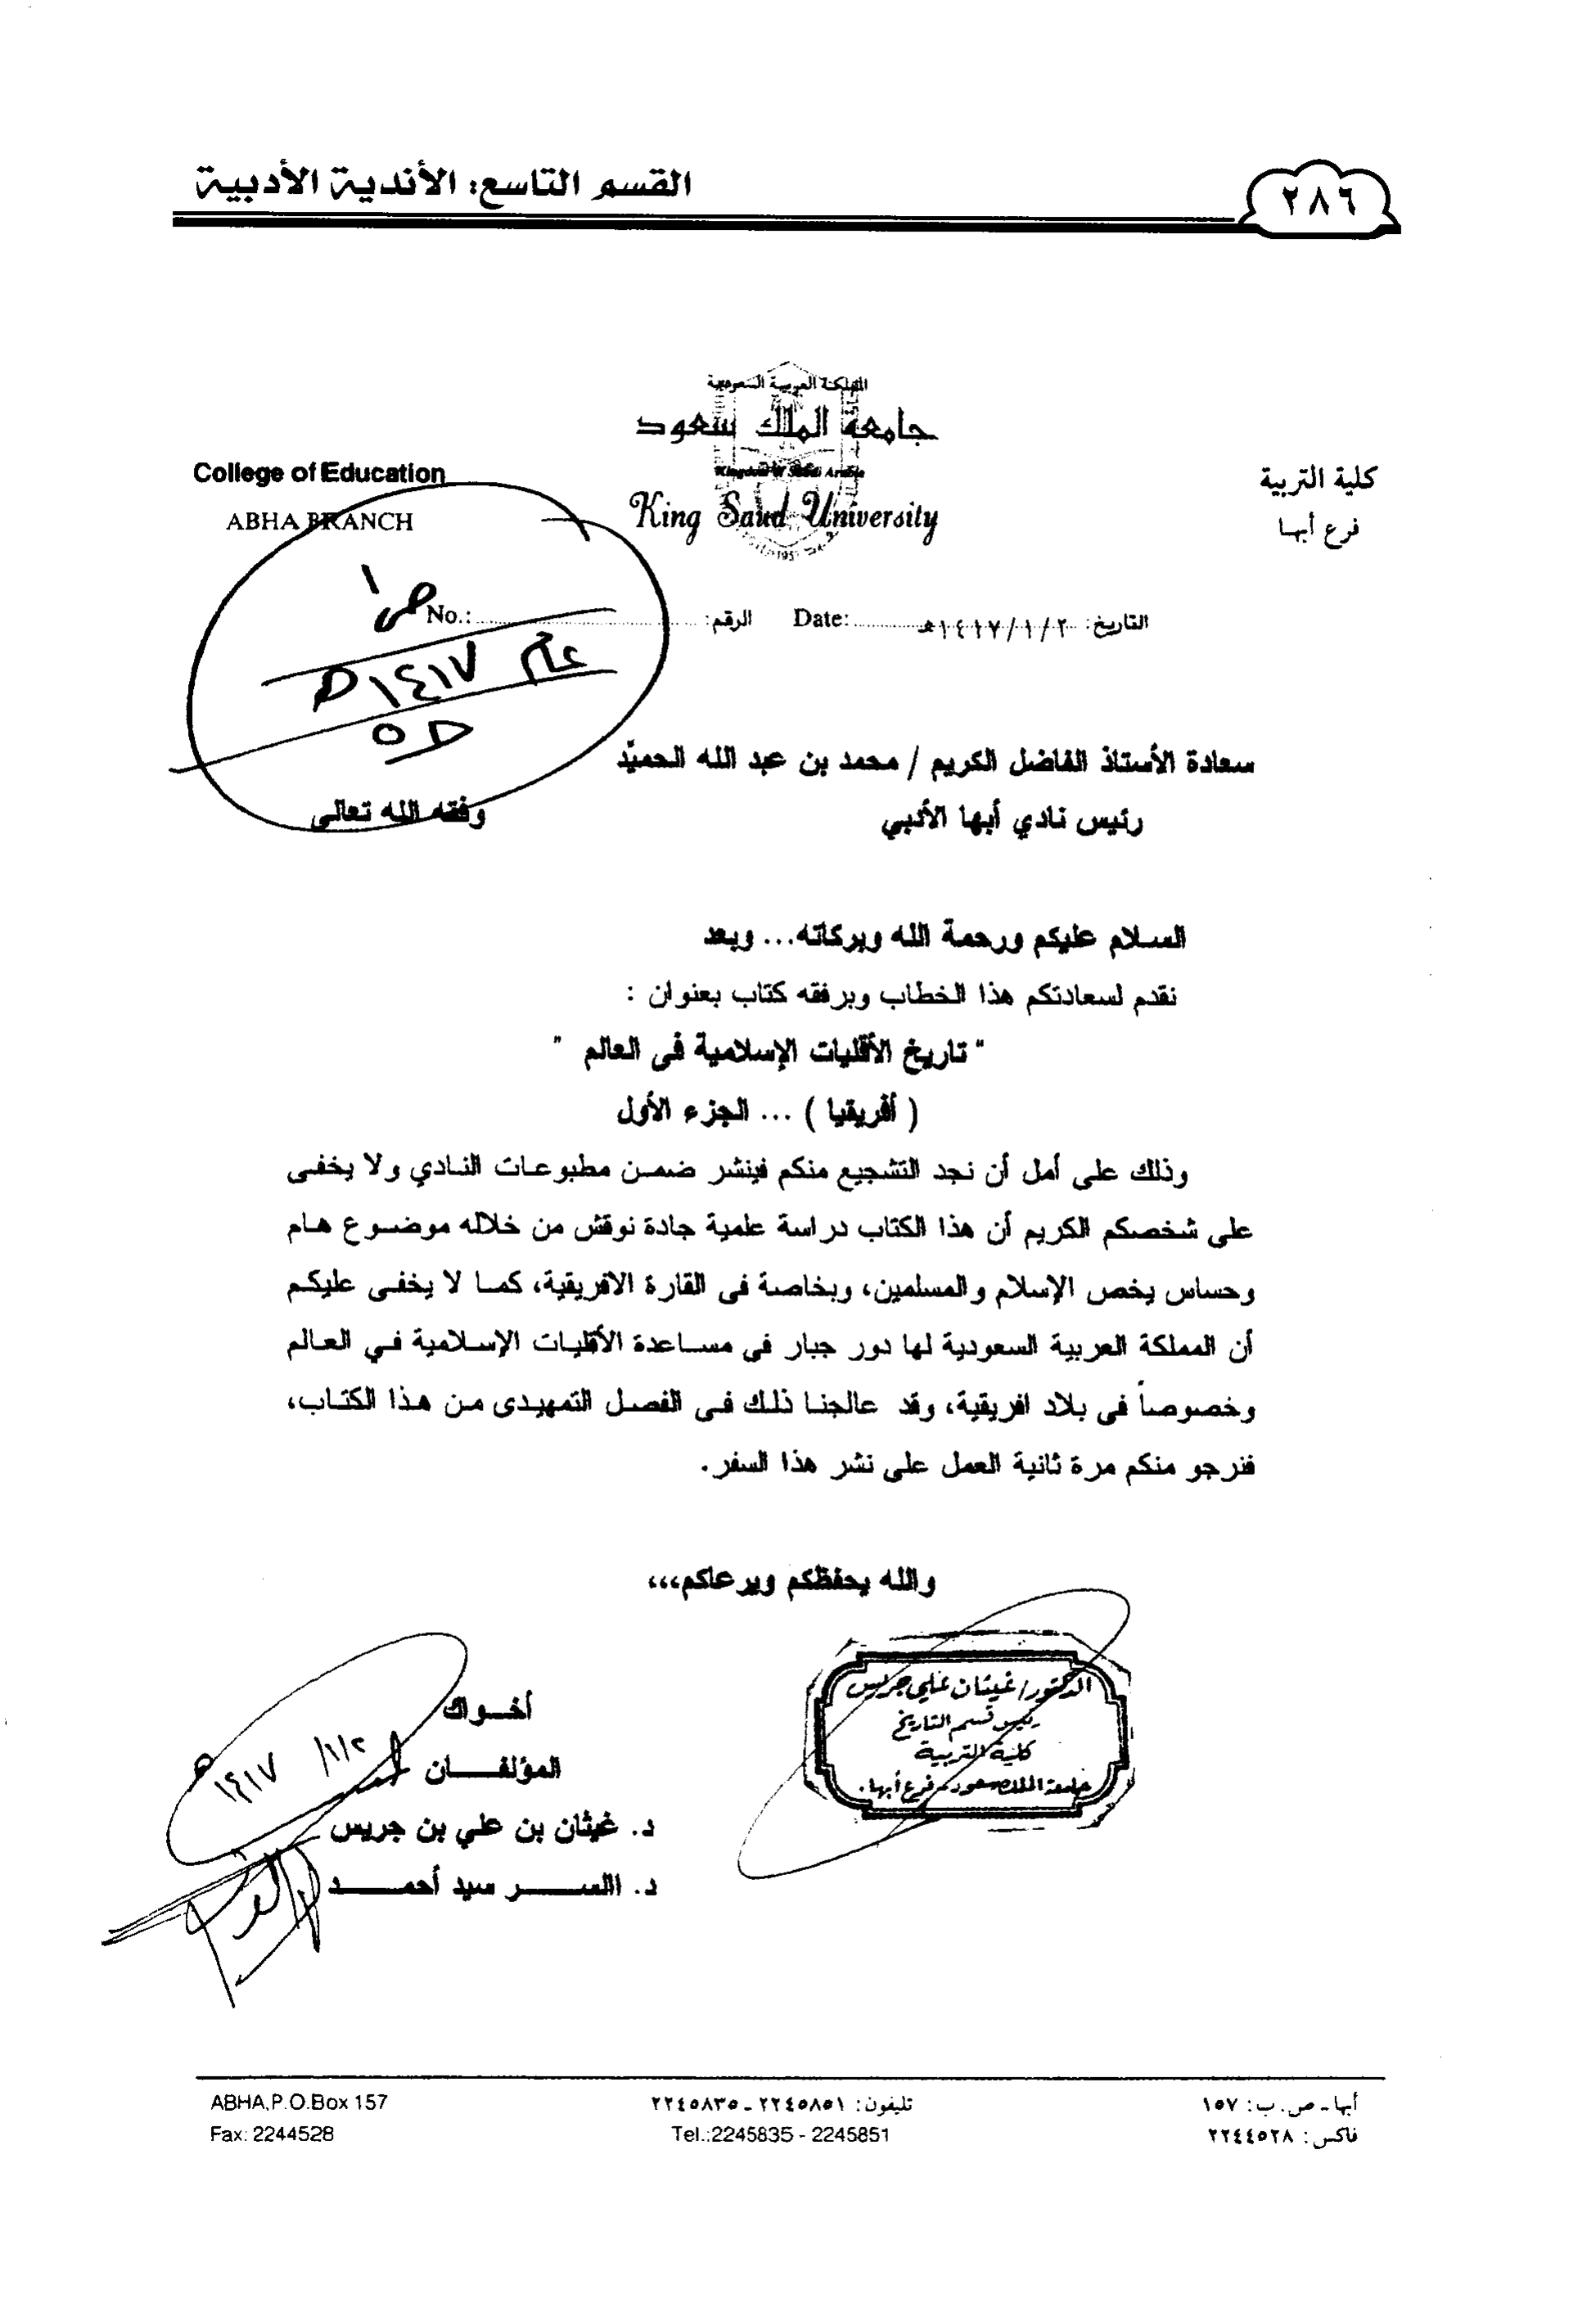 القسم التاسع: الأندية الأدبية
٢٨٦
المملكة العربية السعودية
جامعة الملك سعود
Kingdom of Saudi Arabia
King Saud University
كلية التربية
فرع أبها
College of Education
ABHA BRANCH
التاريخ: ١٤١٧/١/٢هـ Date:
الرقم: No.:
ص ١
عام ١٤١٧هـ
سعادة الأستاذ الفاضل الكريم / محمد بن عبد الله الحميّد
رئيس نادي أبها الأدبي وفقه الله تعالى
السلام عليكم ورحمة الله وبركاته... وبعد
نقدم لسعادتكم هذا الخطاب وبرفقه كتاب بعنوان :
" تاريخ الأقليات الإسلامية فى العالم "
( أفريقيا ) ... الجزء الأول
وذلك على أمل أن نجد التشجيع منكم فينشر ضمن مطبوعات النادي ولا يخفى
على شخصكم الكريم أن هذا الكتاب دراسة علمية جادة نوقش من خلاله موضوع هام
وحساس يخص الإسلام والمسلمين، وبخاصة فى القارة الافريقية، كما لا يخفى عليكم
أن المملكة العربية السعودية لها دور جبار فى مساعدة الأقليات الإسلامية في العالم
وخصوصاً فى بلاد افريقية، وقد عالجنا ذلك فى الفصل التمهيدى من هذا الكتاب،
فنرجو منكم مرة ثانية العمل على نشر هذا السفر.
والله يحفظكم ويرعاكم،،،
الدكتور/ غيثان علي جريس
رئيس قسم التاريخ
كلية التربية
جامعة الملك سعود فرع أبها.
أخواك
المؤلفان
١٤١٧/١/٢هـ
د. غيثان بن علي بن جريس
د. السر سيد أحمد
أبها - ص. ب: ١٥٧
فاكس: ٢٢٤٤٥٢٨
تليفون: ٢٢٤٥٨٥١ - ٢٢٤٥٨٣٥
Tel.:2245835 - 2245851
ABHA,P.O.Box 157
Fax: 2244528